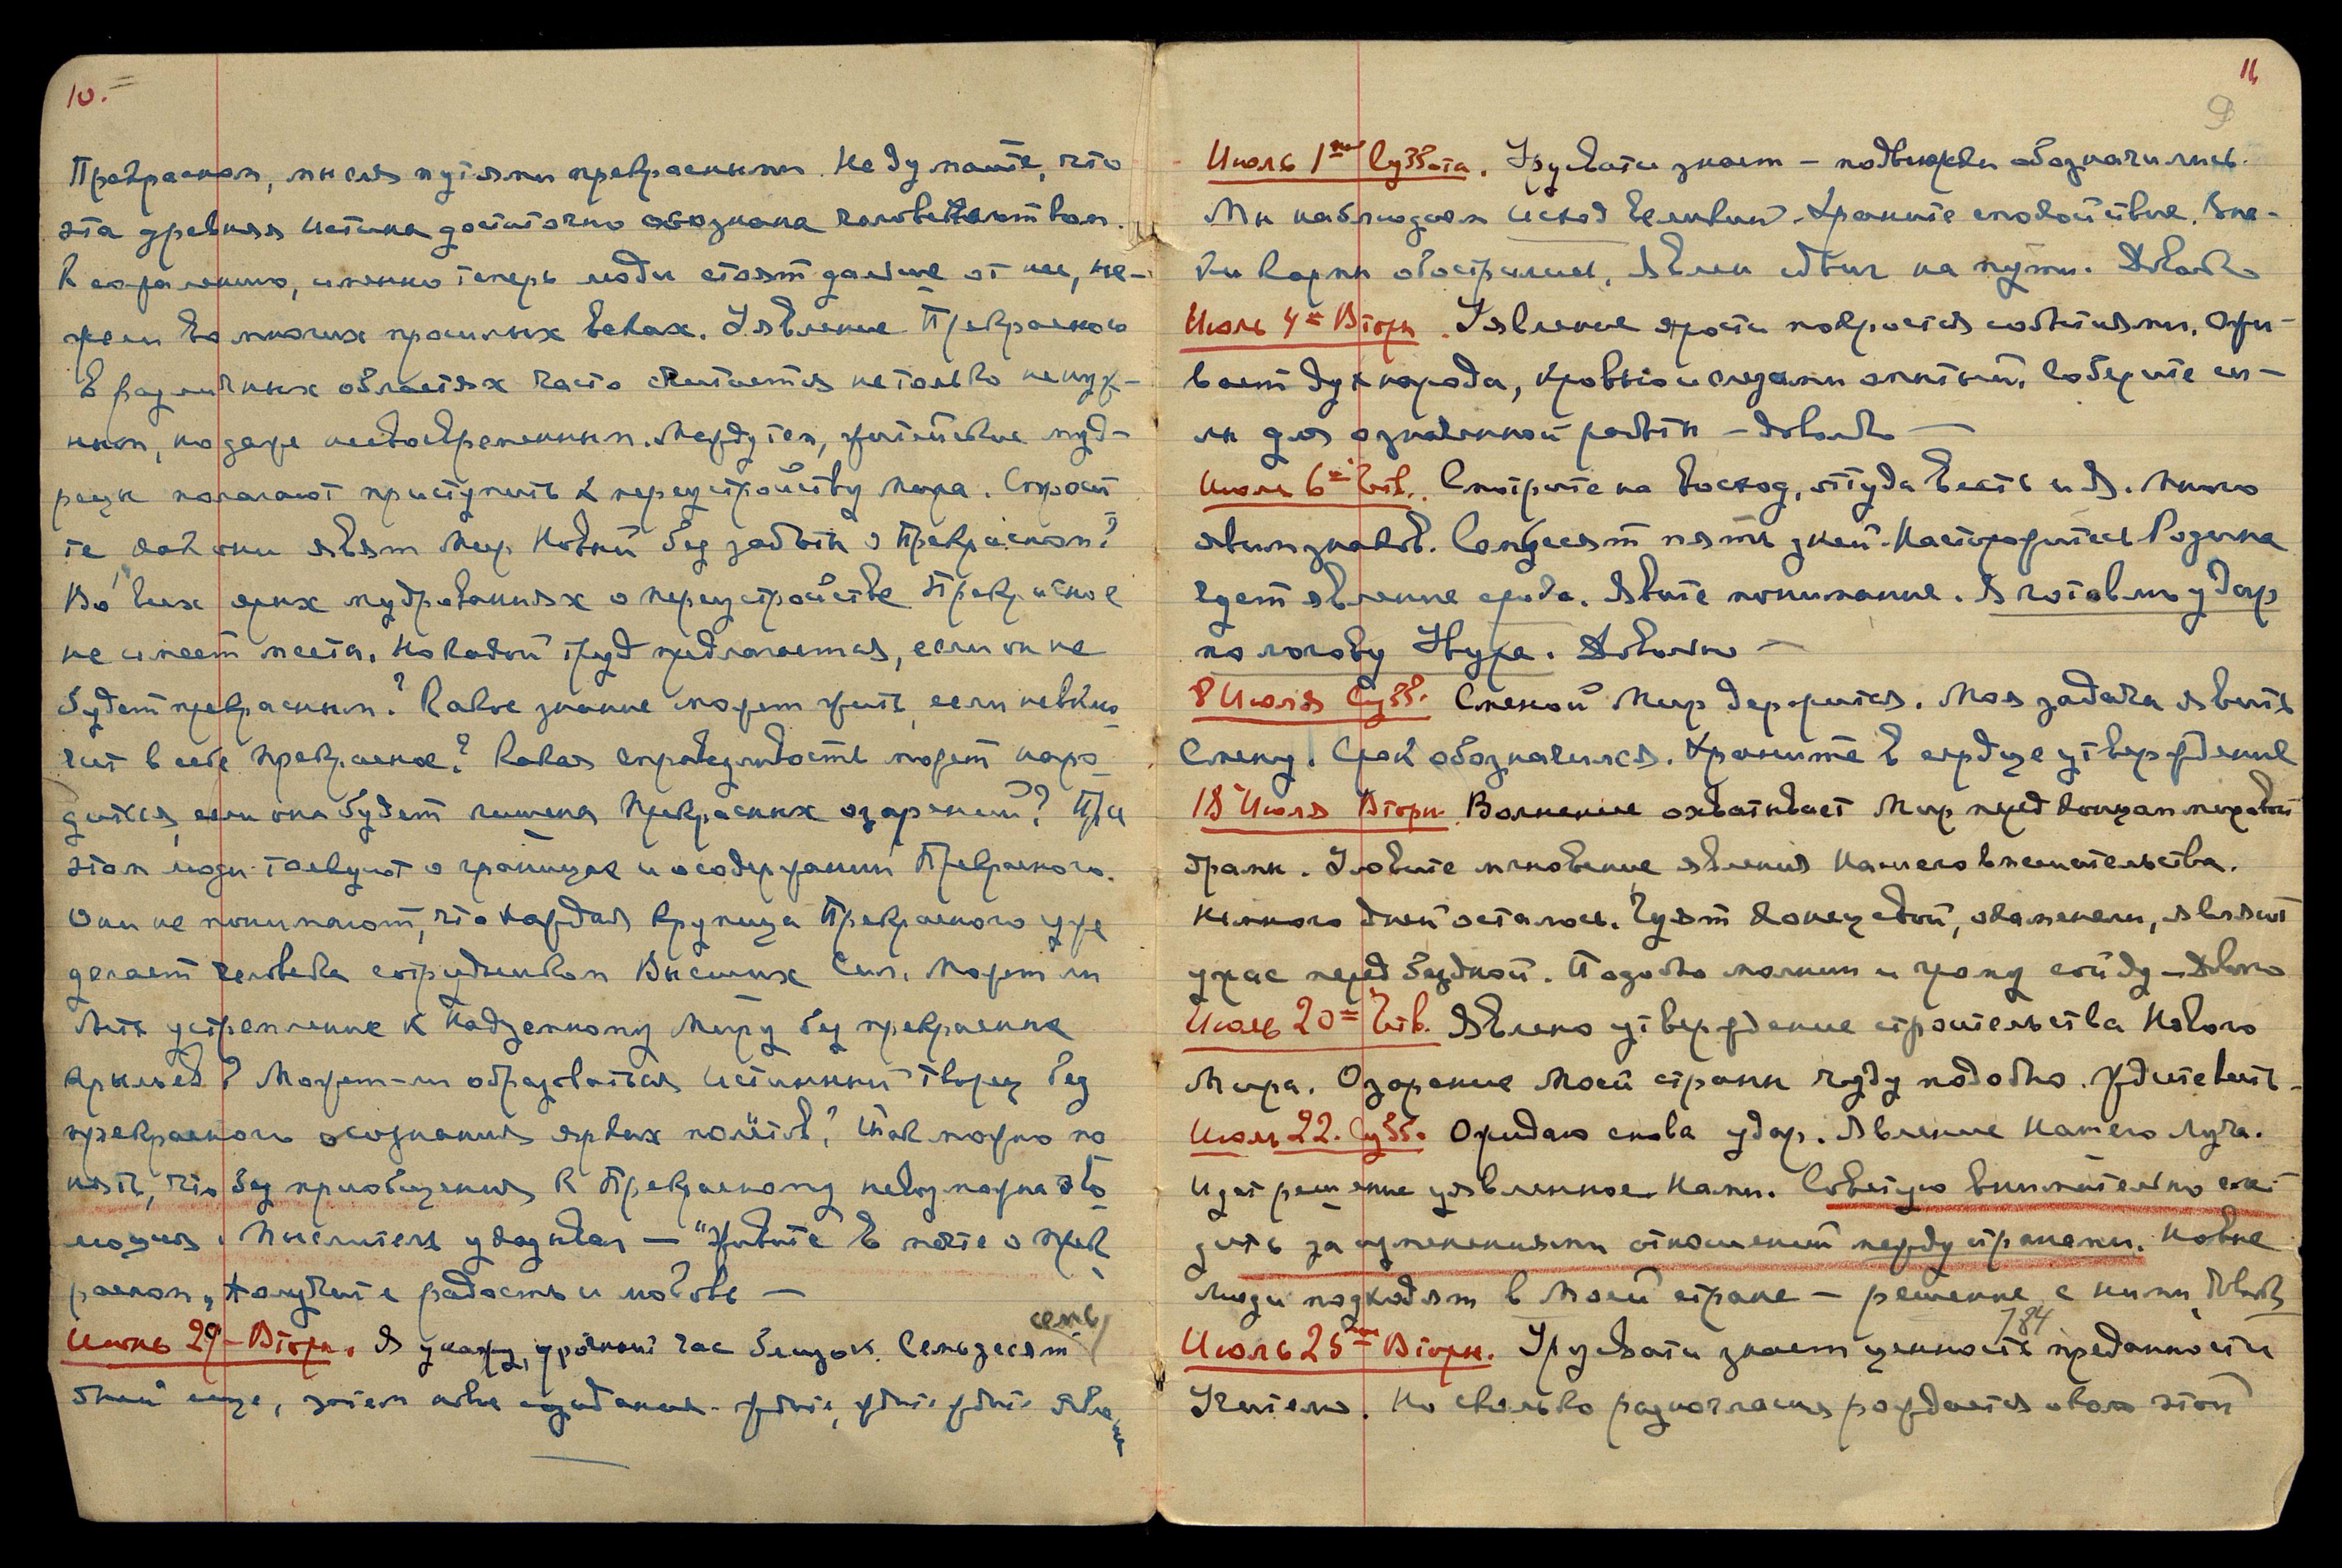 10.
Прекрасном, мысля путями прекрасными. Не думайте, что
эта древняя истина достаточно осознана человечеством.
К сожалению, именно теперь люди стоят дальше от нее, не-
жели во многих прошлых веках. Уявление Прекрасного
в различных областях часто считается не только ненуж-
ным, но даже несвоевременным. Между тем, житейские муд-
рецы полагают приступить к переустройству Мира. Спроси
те как они явят Мир Новый без заботы о Прекрасном?
Во всех этих мудрованиях о переустройстве Прекрасное
не имеет места. Но какой труд предлагается, если он не
будет прекрасным? Какое знание может жить, если не вклю-
чит в себе прекрасное? Какая справедливость может наро-
диться, если она будет лишена Прекрасных озарений? При
этом люди толкуют о границах и о содержании Прекрасного.
Они не понимают, что каждая крупица Прекрасного уже
делает человека сотрудником Высших Сил. Может ли
быть устремление к Надземному Миру без прекрасных
крыльев? Может-ли образоваться истинный творец без
прекрасного осознания ярких полётов? Так можно по
нять, что без приобщения к Прекрасному невозможна эво-
люция. Мыслитель указывал — "Живите в мечте о прек-
расном, получите радость и любовь —
Июнь 29 – Вторн. Я укажу, урочный час близок. Семьдесят семь
дней еще, затем новые ожидания. Ждите, ждите ждите
11
9
Июль 1ое Суббота. Урусвати знает – подвижки обозначились.
Мы наблюдаем исход великий. Храните спокойствие. Зна-
ки Кармы обострились, явлен сдвиг на пути. Довольно
Июль 4ое Вторн. Уявление ярости покроется событиями. Ожи-
вает дух народа, кровью и слезами омытый. Соберите си-
лы для означенной работы – довольно —
Июль 6ое Четв. Смотрите на Восход, оттуда весть и Я. Много
явим знаков. Семьдесят пять дней. Насторожитесь Родина
ждет явление срока. Явите понимание. Я готовлю удар
по логову. Довольно —
8 Июля Субб. Сменой Мир держится. Моя задача явить
Смену. Срок обозначился. Храните в сердце утверждение
18 Июля Вторн. Волнение охватывает Мир перед концом мировой
драмы. Уловите мгновение явления Нашего вмешательства.
Немного дней осталось. Чуят конец свой, окаменели, являют
ужас перед бездной. Подобно молнии и грому сойду – Довольно
Июль 20ое Четв. Явлено утверждение строительства Нового
Мира. Озарение Моей страны чуду подобно.
Июль 22. Субб. Ожидаю снова удар. Явление Нашего луча.
Идет решение уявленное Нами. Советую внимательно сле-
дить за изменениями отношений между странами. Новые
люди подходят в Моей стране – решение с ними.
784
Июль 25ое Вторн. Урусвати знает ценность преданности
Учителю. Но сколько разногласия рождается около этой